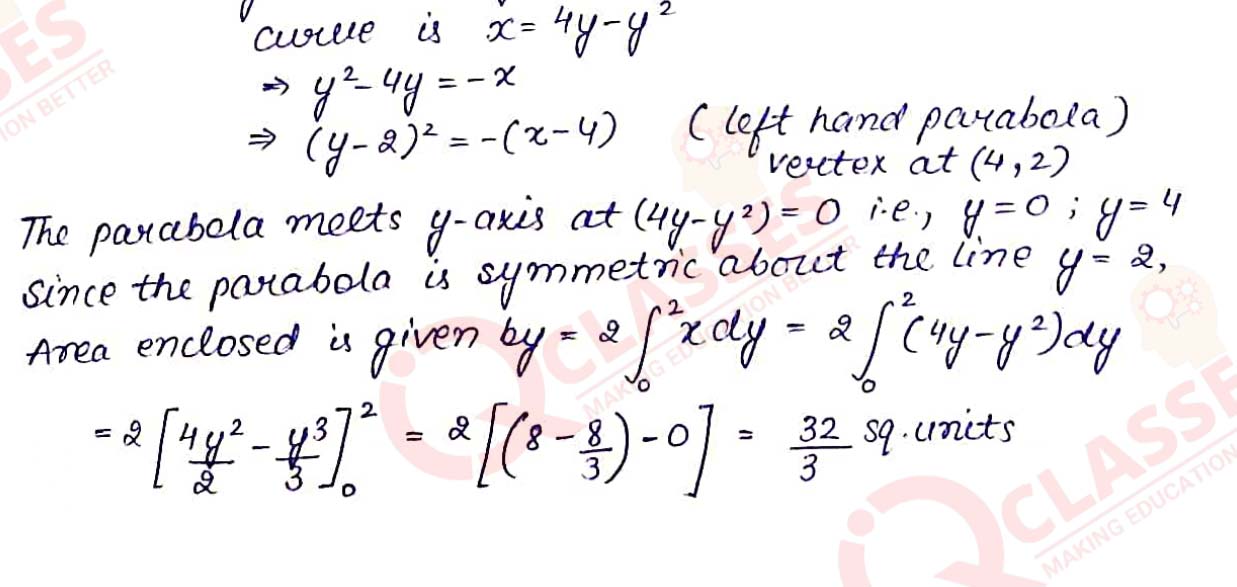 curve is x = 4y - y²
⇒ y² - 4y = - x
⇒ (y - 2)² = - (x - 4) (left hand parabola)
vertex at (4, 2)
The parabola meets y-axis at (4y - y²) = 0 i.e., y = 0 ; y = 4
since the parabola is symmetric about the line y = 2,
Area enclosed is given by = 2 ∫₀² x dy = 2 ∫₀² (4y - y²) dy
= 2 [4y²/2 - y³/3]₀² = 2 [(8 - 8/3) - 0] = 32/3 sq. units
SES
ION BETTER
CLASSES
MAKING EDUCATION BE
CLASSE
MAKING EDUCATION